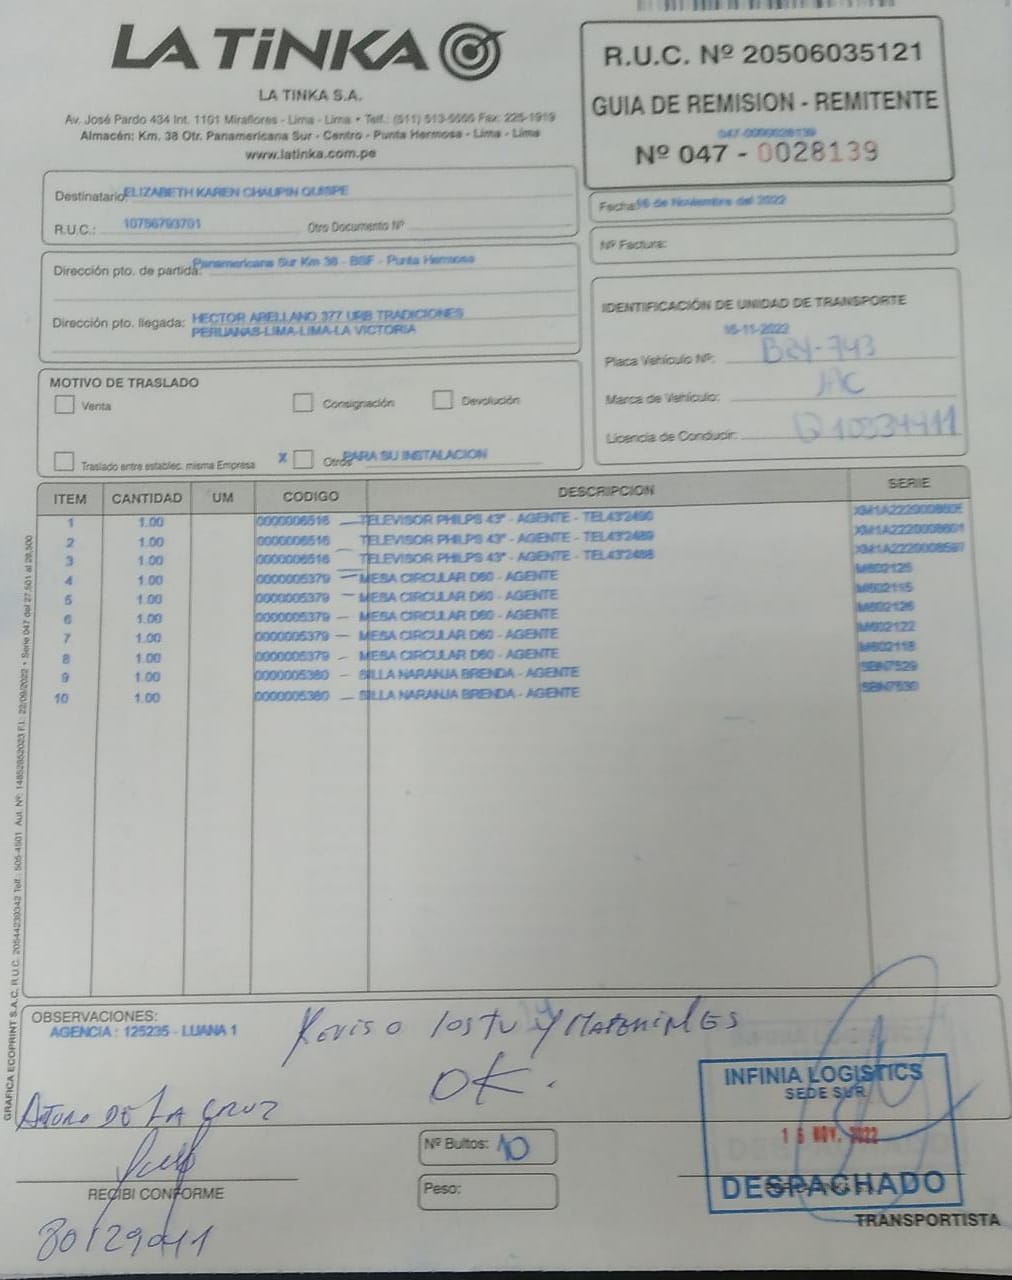 LA TiNKA
LA TINKA S.A.
Av. José Pardo 434 Int. 1101 Miraflores - Lima - Lima • Telf.: (511) 513-5555 Fax: 225-1919
Almacén: Km. 38 Otr. Panamericana Sur - Centro - Punta Hermosa - Lima - Lima
www.latinka.com.pe
R.U.C. Nº 20506035121
GUIA DE REMISION - REMITENTE
047-0000028139
Nº 047 - 0028139
Destinatario: ELIZABETH KAREN CHAUPIN QUISPE
R.U.C.: 10756793701 Otro Documento Nº
Fecha: 16 de Noviembre del 2022
Nº Factura:
Dirección pto. de partida: Panamericana Sur Km 38 - BSF - Punta Hermosa
Dirección pto. llegada: HECTOR ARELLANO 377 URB TRADICIONES
PERUANAS-LIMA-LIMA-LA VICTORIA
IDENTIFICACIÓN DE UNIDAD DE TRANSPORTE
16-11-2022
Placa Vehículo Nº: -743
Marca de Vehículo: JAC
Licencia de Conducir:
MOTIVO DE TRASLADO
Venta Consignación Devolución
Traslado entre establec. misma Empresa X Otros PARA SU INSTALACION
ITEM CANTIDAD UM CODIGO DESCRIPCION SERIE
1 1.00 0000006516 TELEVISOR PHILPS 43" - AGENTE - TEL432490
2 1.00 0000006516 TELEVISOR PHILPS 43" - AGENTE - TEL432489 XM1A2220008601
3 1.00 0000006516 TELEVISOR PHILPS 43" - AGENTE - TEL432488 XM1A2220008597
4 1.00 0000005379 MESA CIRCULAR D60 - AGENTE M602125
5 1.00 0000005379 MESA CIRCULAR D60 - AGENTE M602115
6 1.00 0000005379 MESA CIRCULAR D60 - AGENTE M602126
7 1.00 0000005379 MESA CIRCULAR D60 - AGENTE M602122
8 1.00 0000005379 MESA CIRCULAR D60 - AGENTE M602118
9 1.00 0000005380 SILLA NARANJA BRENDA - AGENTE SBN7529
10 1.00 0000005380 SILLA NARANJA BRENDA - AGENTE SBN7530
GRAFICA ECOPRINT S.A.C. R.U.C. 20544239342 Telf.: 505-4501 Aut. Nº: 14852852023 F.I.: 22/09/2022 • Serie 047 del 27,501 al 28,500
OBSERVACIONES:
AGENCIA : 125235 - LUANA 1
Reviso Y MATERIALES
OK.
Arturo DE LA CRUZ
RECIBI CONFORME
80129041
Nº Bultos: 10
Peso:
INFINIA LOGISTICS
SEDE SUR
16 NOV. 2022
DESPACHADO
TRANSPORTISTA